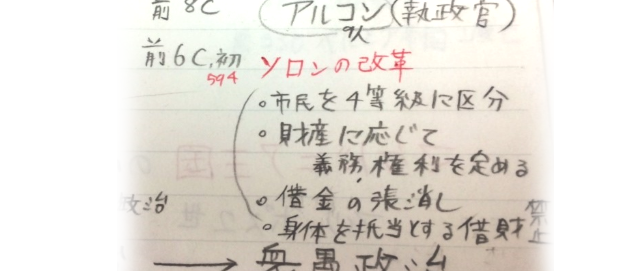 前8C アルコン(執政官)
9人
前6C.初 ソロンの改革
594
・市民を4等級に区分
・財産に応じて
義務、権利を定める
・借金の張消し
政治
・身体を抵当とする借財 禁止
→ 衆愚政治